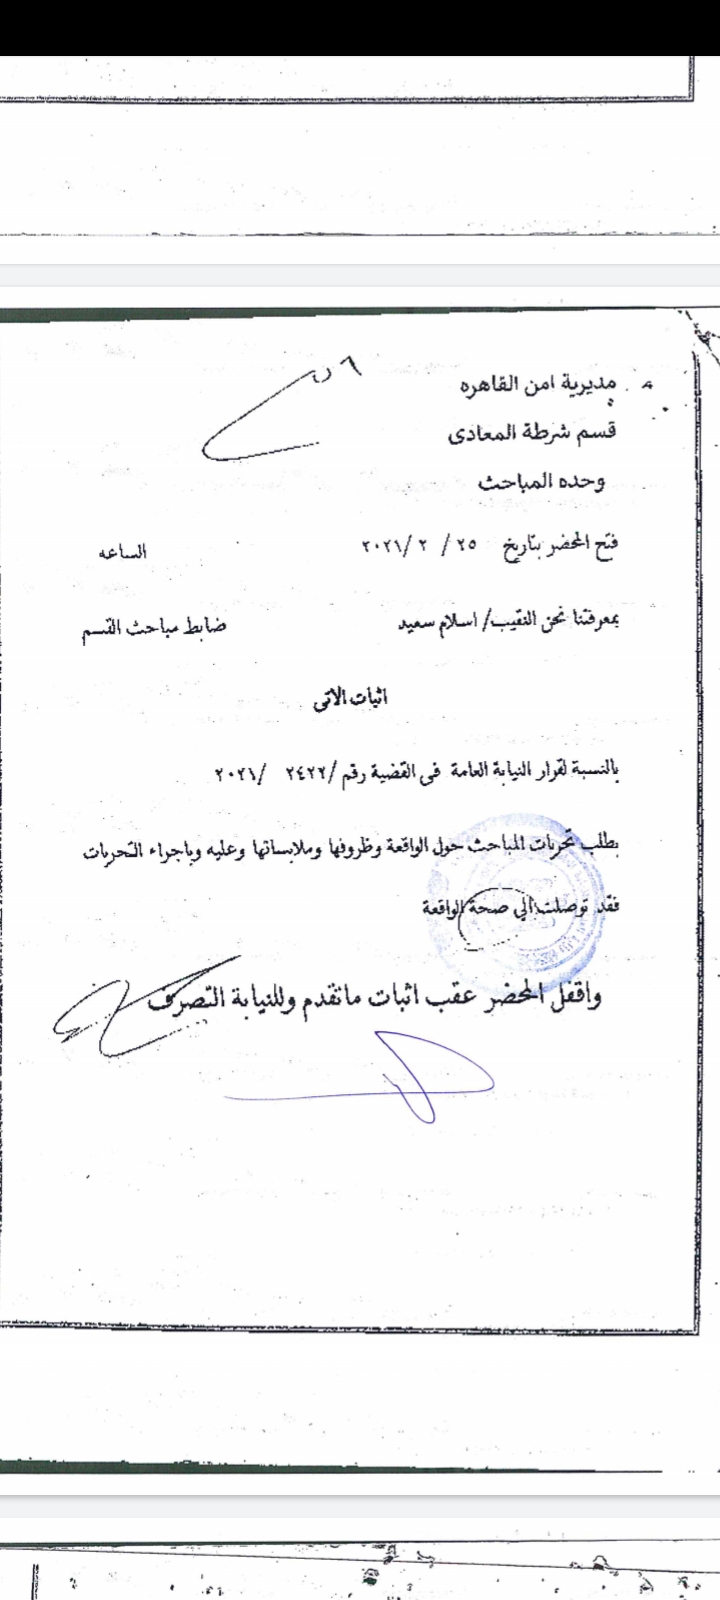 مديرية امن القاهره
قسم شرطة المعادى
وحده المباحث
فتح المحضر بتاريخ ٢٥ / ٢ /٢٠٢١ الساعه
بمعرفتنا نحن النقيب/ اسلام سعيد ضابط مباحث القسم
اثبات الاتى
بالنسبة لقرار النيابة العامة فى القضية رقم /٢٤٢٢ /٢٠٢١
بطلب تحريات المباحث حول الواقعة وظروفها وملابساتها وعليه وباجراء التحريات
فقد توصلت الي صحة الواقعة
واقفل المحضر عقب اثبات ماتقدم وللنيابة التصرف